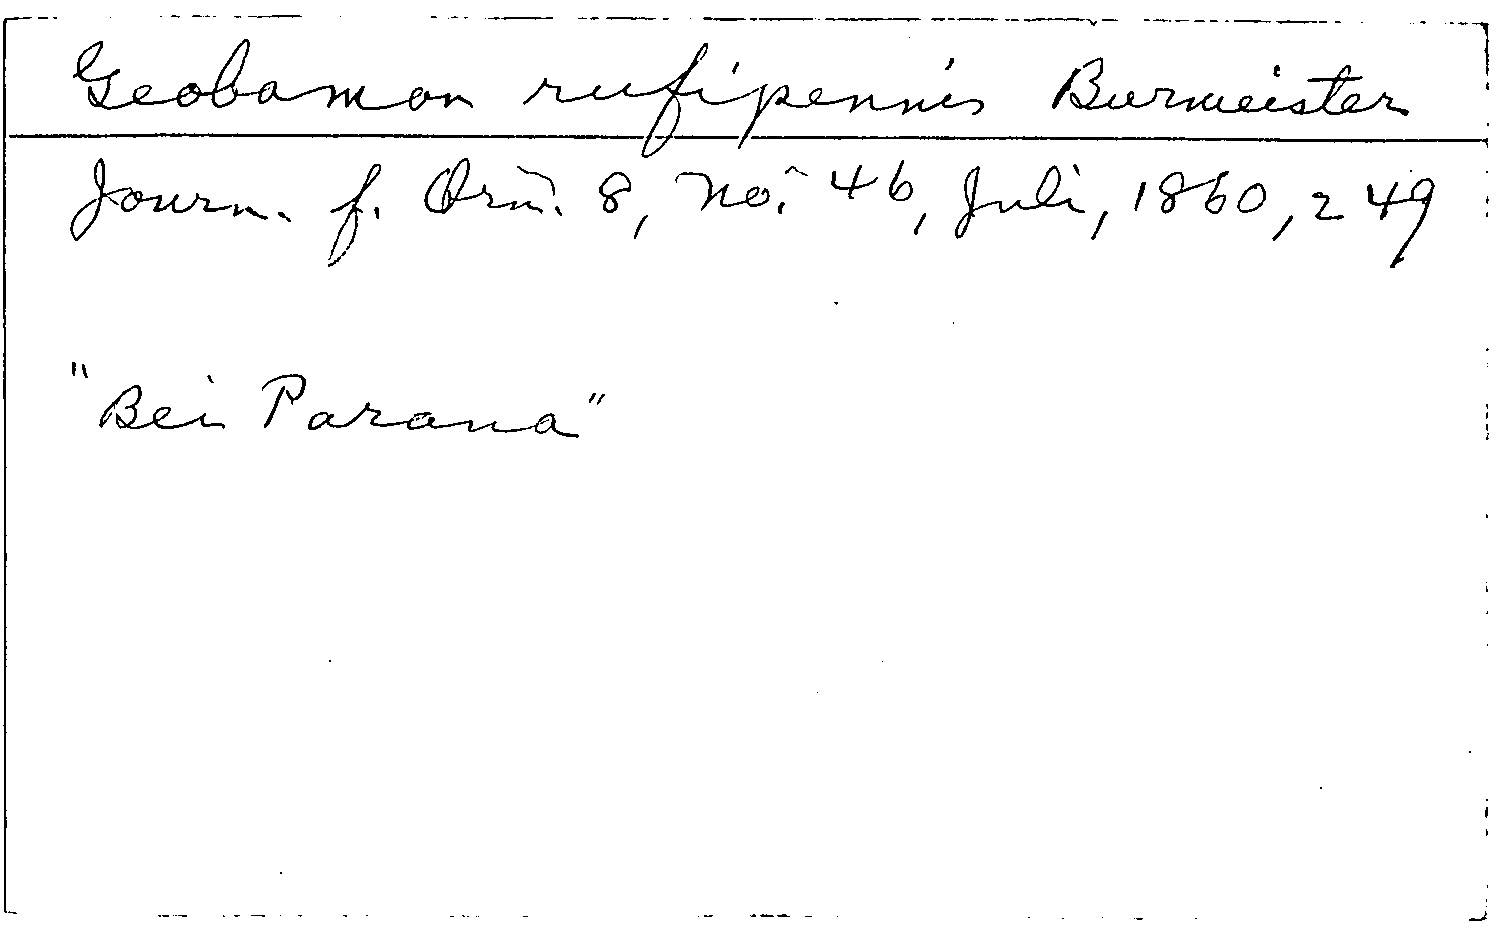 Geobamon rufipennis Burmeister
Journ. f. Orn. 8, No. 46, Juli, 1860, 249
"Bei Parana"